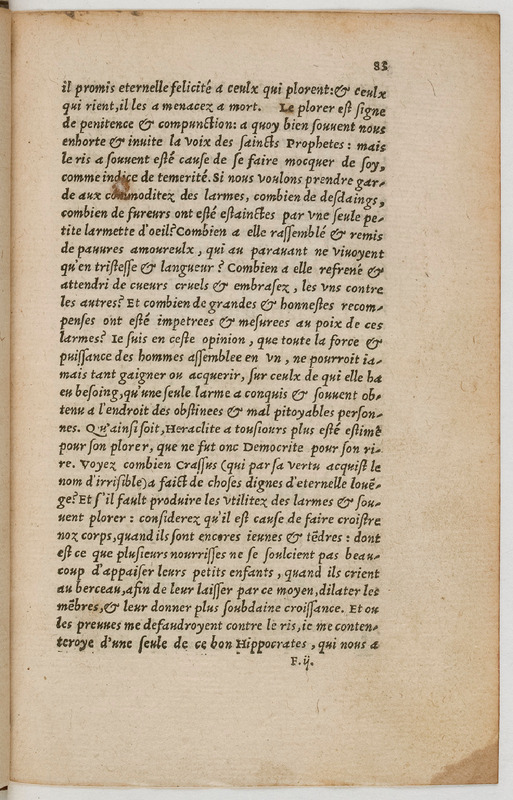 83
il promis eternelle felicité a ceulx qui plorent:& ceulx
qui rient, il les a menacez a mort. Le plorer est signe
de penitence & compunction: a quoy bien souuent nous
enhorte & inuite la voix des saincts Prophetes: mais
le ris a souuent esté cause de se faire mocquer de soy,
comme indice de temerité. Si nous voulons prendre gar-
de aux commoditez des larmes, combien de desdaings,
combien de fureurs ont esté estainctes par vne seule pe-
tite larmette d'oeil? Combien a elle rassemblé & remis
de pauures amoureulx, qui au parauant ne viuoyent
qu'en tristesse & langueur? Combien a elle refrené &
attendri de cueurs cruels & embrasez, les vns contre
les autres? Et combien de grandes & honnestes recom-
penses ont esté impetrees & mesurees au poix de ces
larmes? Ie suis en ceste opinion, que toute la force &
puissance des hommes assemblee en vn, ne pourroit ia-
mais tant gaigner ou acquerir, sur ceulx de qui elle ha
eu besoing, qu'vne seule larme a conquis & souuent ob-
tenu a l'endroit des obstinees & mal pitoyables person-
nes. Qu'ainsi soit, Heraclite a tousiours plus esté estimé
pour son plorer, que ne fut onc Democrite pour son ri-
re. Voyez combien Crassus (qui par sa vertu acquist le
nom d'irrisible) a faict de choses dignes d'eternelle louë-
ge? Et s'il fault produire les vtilitez des larmes & sou-
uent plorer: considerez qu'il est cause de faire croistre
noz corps, quand ils sont encores ieunes & tẽdres: dont
est ce que plusieurs nourrisses ne se soulcient pas beau-
coup d'appaiser leurs petits enfants, quand ils crient
au berceau, afin de leur laisser par ce moyen, dilater les
mẽbres, & leur donner plus soubdaine croissance. Et ou
les preuues me defaudroyent contre le ris, ie me conten-
teroye d'une seule de ce bon Hippocrates, qui nous a
F.ij.